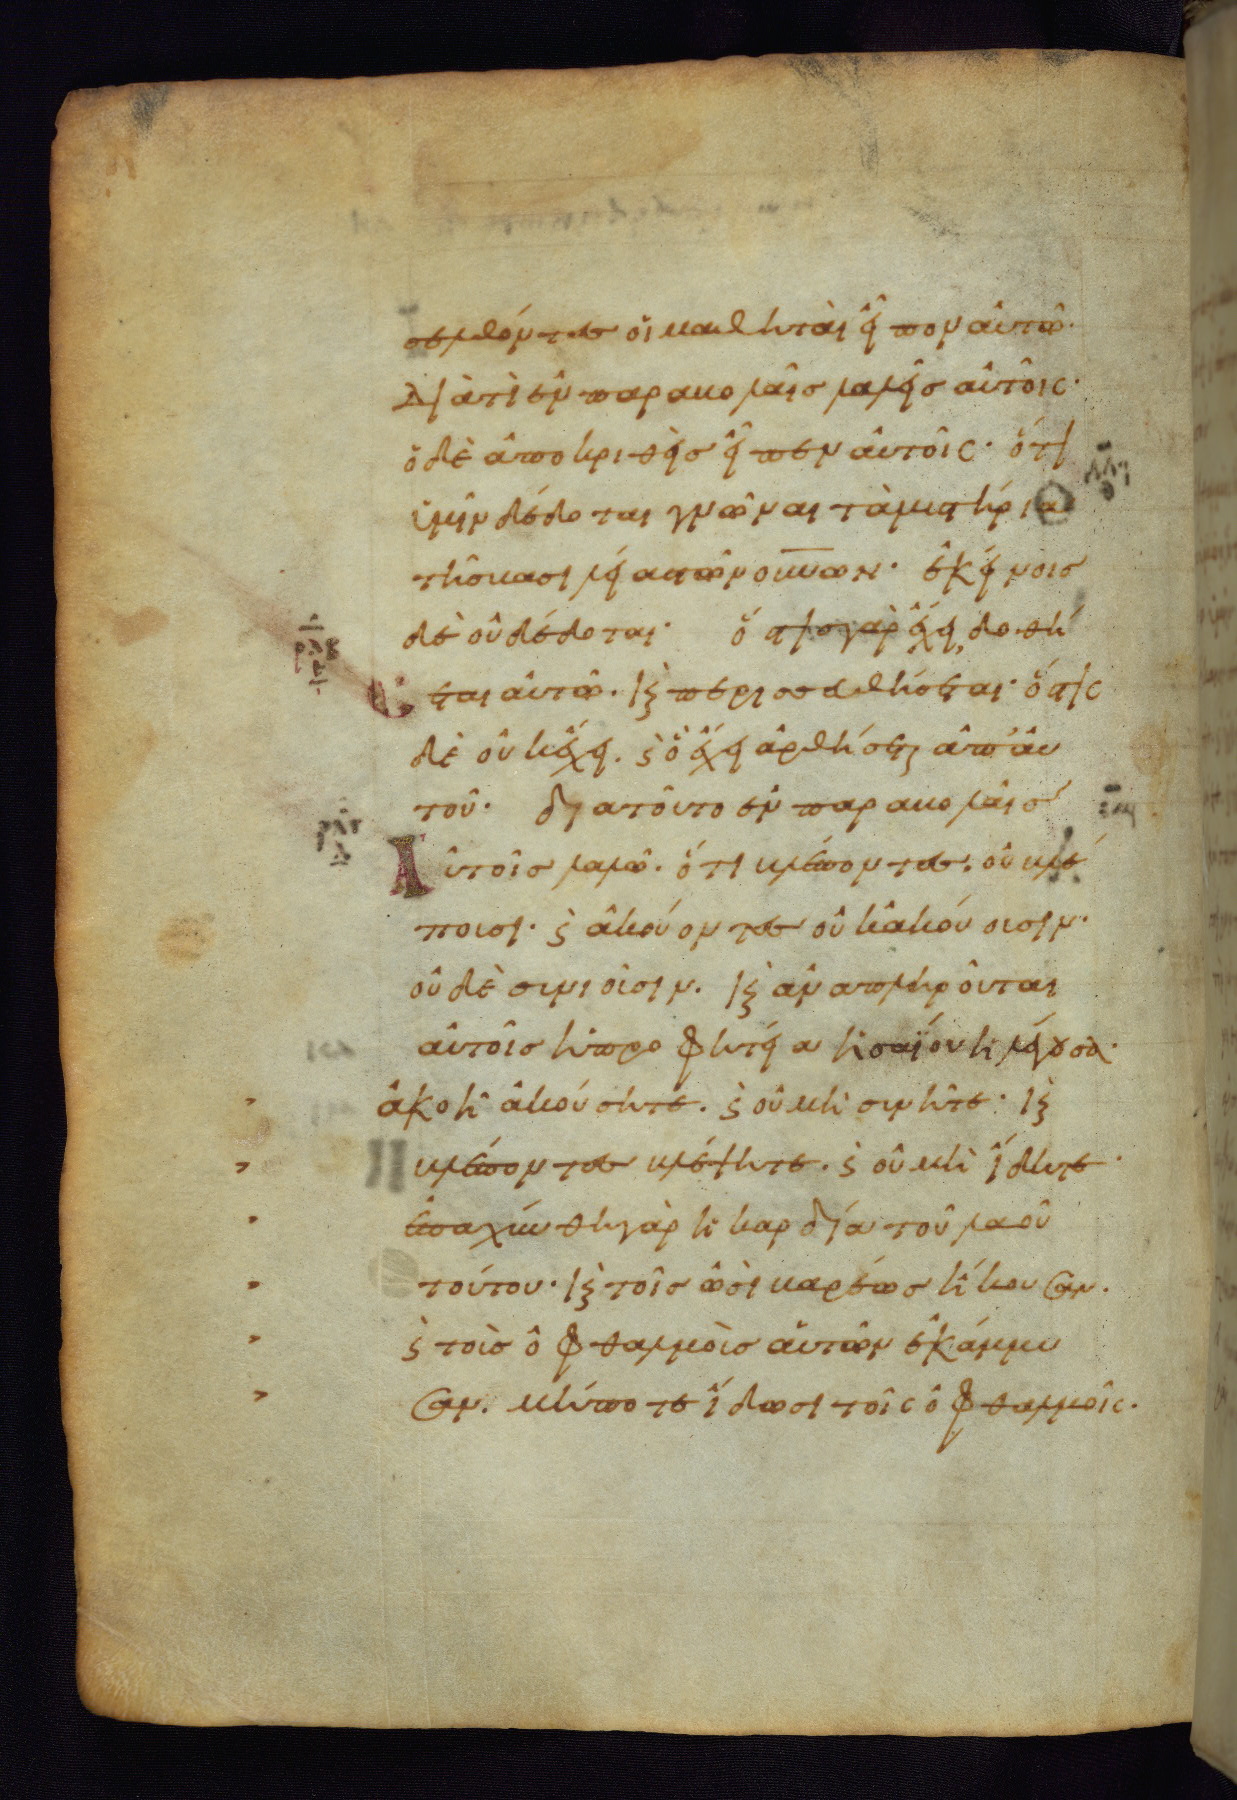 σελθόντες οἱ μαθηταὶ εἶπον αὐτῶ·
Διατὶ ἐν παραβολαῖς λαλεῖς αὐτοῖς·
ὁ δὲ ἀποκριθεὶς εἶπεν αὐτοῖς· ὅτι
ὑμῖν δέδοται γνῶναι τὰ μυστήρια
τῆς βασιλείας τῶν οὐνῶν· ἐκείνοις
δὲ οὐ δέδοται· ὅστις γὰρ ἔχει, δοθή
σεται αὐτῶ. καὶ περισσευθήσεται· ὅστις
δὲ οὐκ ἔχει. καὶ ὃ ἔχει ἀρθήσεται ἀπ' αὐ
τοῦ· διατοῦτο ἐν παραβολαῖς
Αὐτοῖς λαλῶ. ὅτι βλέποντες. οὐ βλέ
πουσι· καὶ ἀκούοντες οὐκ ἀκούουσιν·
οὐδὲ συνιοῦσιν. καὶ ἀναπληροῦται
αὐτοῖς ἡ προφητεία ἡσαΐου ἡ λέγουσα·
ἀκοῆ ἀκούσητε. καὶ οὐ μὴ συνῆτε· καὶ
βλέποντες βλέψητε. καὶ οὐ μὴ ἴδητε·
ἐπαχύνθη γὰρ ἡ καρδία τοῦ λαοῦ
τούτου· καὶ τοῖς ὠσὶ βαρέως ἤκουσαν.
καὶ τοὺς ὀφθαλμοὺς αὐτῶν ἐκάμμυ
σαν. μήποτε ἴδωσι τοῖς ὀφθαλμοῖς.